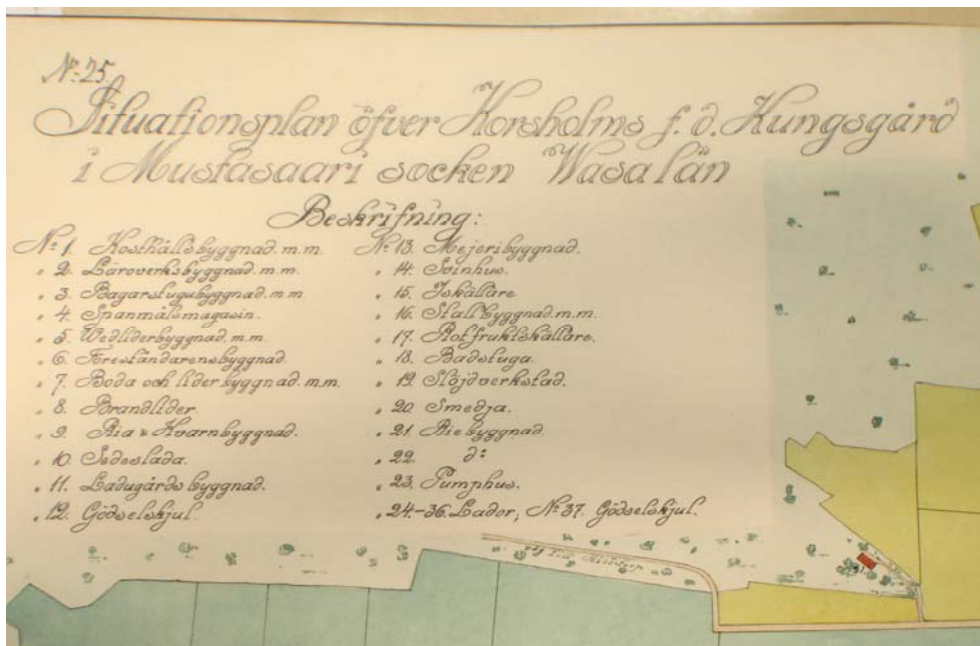 N:25.
Situationsplan öfver Korsholms f. d. Kungsgård
i Mustasaari socken Wasa län
Beskrifning:
N:1. Kosthållsbyggnad. m.m.
" 2. Läroverksbyggnad. m.m.
" 3. Bagarstugubyggnad. m.m
" 4. Spanmålsmagasin.
" 5. Wedliderbyggnad. m.m.
" 6. Föreståndarensbyggnad
" 7. Boda och lider byggnad. m.m.
" 8. Brandlider.
" 9. Ria & Kvarnbyggnad.
" 10. Sädeslada.
" 11. Ladugårds byggnad.
" 12. Gödselskjul.
N:13. Mejeribyggnad.
" 14. Svinhus.
" 15. Iskällare
" 16. Stallbyggnad. m.m.
" 17. Rotfruktskällare.
" 18. Badstuga.
" 19. Slöjdverkstad.
" 20. Smedja.
" 21. Riebyggnad.
" 22. d:
" 23. Pumphus.
" 24.-36. Lador, N:37. Gödselskjul.